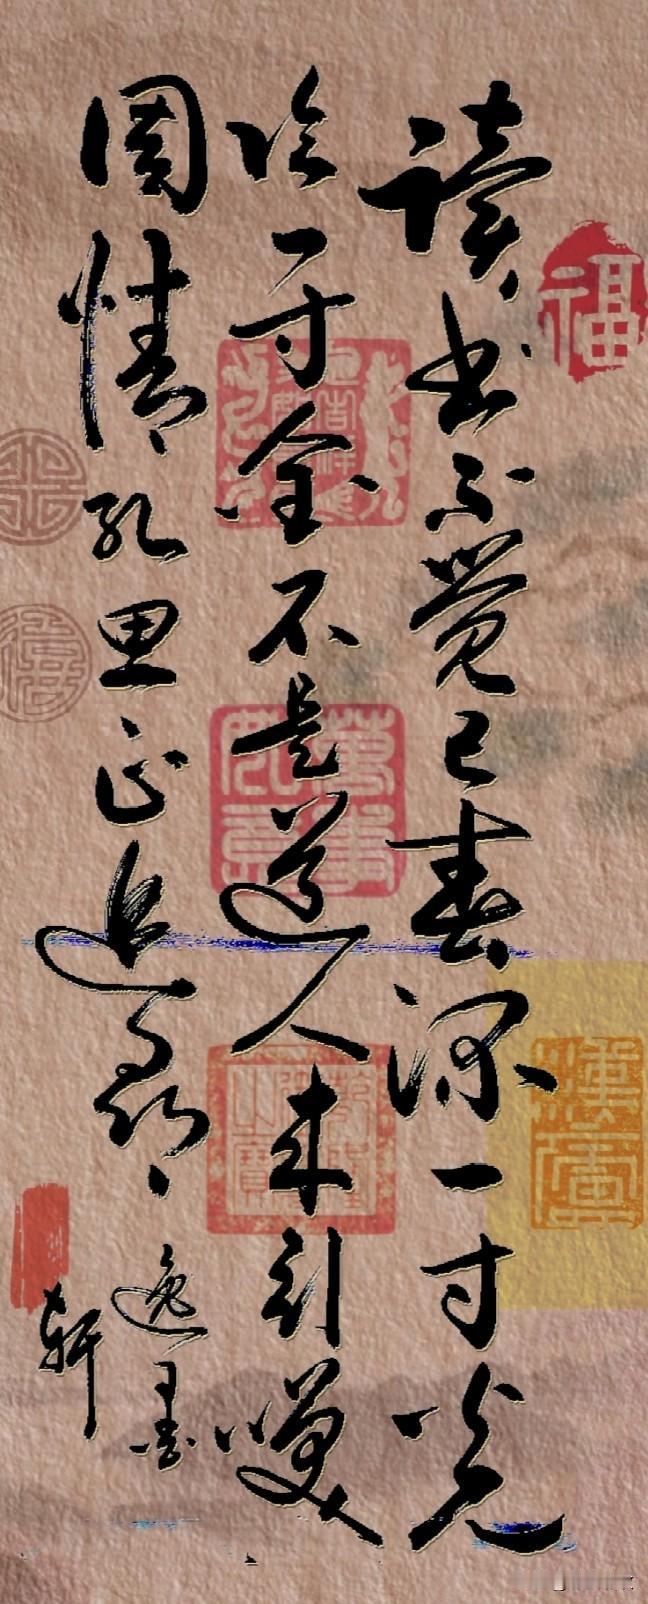 读书不觉已春深一寸光
阴一寸金不是道人来引笑
周情孔思正追寻
逸墨
轩
福